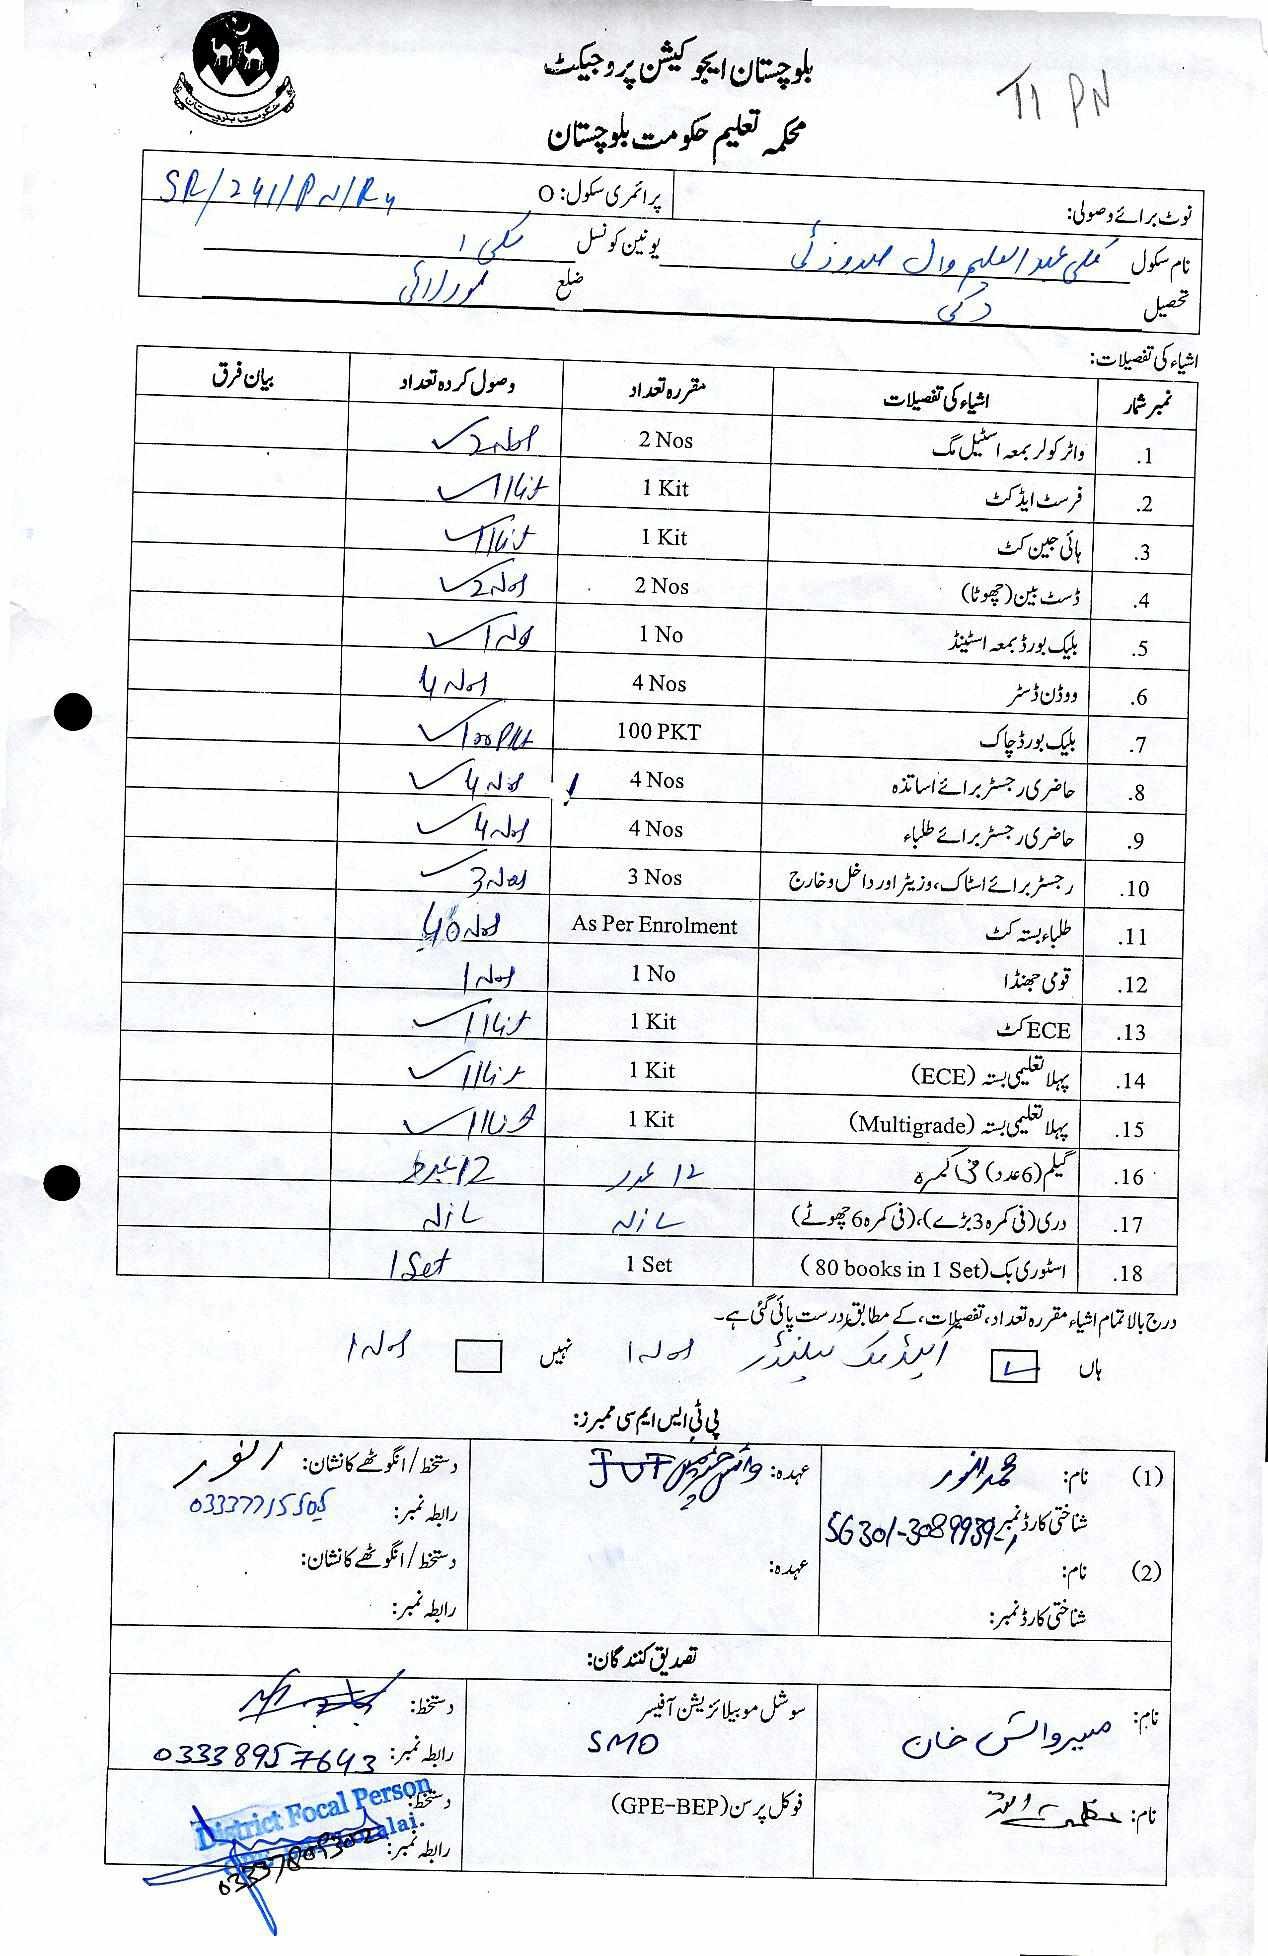 حکومت بلوچستان
بلوچستان ایجوکیشن پروجیکٹ
T1 PN
محکمہ تعلیم حکومت بلوچستان
نوٹ برائے وصولی:
پرائمری سکول: O SR/241/PN/R4
نام سکول کلی عبدالعلیم وال صدوزئی یونین کونسل
تحصیل دکی ضلع لورلائی
اشیاء کی تفصیلات:
نمبر شمار اشیاء کی تفصیلات مقررہ تعداد وصول کردہ تعداد بیان فرق
1. واٹر کولر بمعہ اسٹیل مگ 2 Nos 2 Nos ✓
2. فرسٹ ایڈ کٹ 1 Kit 1 Kit ✓
3. ہائی جین کٹ 1 Kit 1 Kit ✓
4. ڈسٹ بین (چھوٹا) 2 Nos 2 Nos ✓
5. بلیک بورڈ بمعہ اسٹینڈ 1 No 1 No ✓
6. ووڈن ڈسٹر 4 Nos 4 Nos
7. بلیک بورڈ چاک 100 PKT 100 PKT ✓
8. حاضری رجسٹر برائے اساتذہ 4 Nos 4 Nos ✓
9. حاضری رجسٹر برائے طلباء 4 Nos 4 Nos ✓
10. رجسٹر برائے اسٹاک، وزیٹر اور داخل و خارج 3 Nos 3 Nos ✓
11. طلباء بستہ کٹ As Per Enrolment 40 Nos
12. قومی جھنڈا 1 No 1 Nos
13. ECE کٹ 1 Kit 1 Kit ✓
14. پہلا تعلیمی بستہ (ECE) 1 Kit 1 Kit ✓
15. پہلا تعلیمی بستہ (Multigrade) 1 Kit 1 Kit ✓
16. گیلم (6 عدد) فی کمرہ ١٢ عدد 12 عدد
17. دری (فی کمرہ 3 بڑے)، (فی کمرہ 6 چھوٹے)
18. اسٹوری بک (80 books in 1 Set) 1 Set 1 Set
درج بالا تمام اشیاء مقررہ تعداد، تفصیلات، کے مطابق درست پائی گئی ہے۔
ہاں ✓ 1 Nos نہیں 1 Nos
پی ٹی ایس ایم سی ممبرز:
(1) نام: محمد انور عہدہ: وائس چیئرمین JVT دستخط/انگوٹھے کا نشان: انور
شناختی کارڈ نمبر رابطہ نمبر: 03337715505
(2) نام: عہدہ: دستخط/انگوٹھے کا نشان:
شناختی کارڈ نمبر: رابطہ نمبر:
تصدیق کنندگان:
نام: میروائس خان سوشل موبیلائزیشن آفیسر دستخط:
SMO رابطہ نمبر: 03338957643
نام: عظمت اللہ فوکل پرسن (GPE-BEP) دستخط:
District Focal Person
رابطہ نمبر: 03337809302